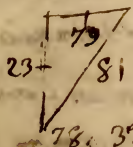 79
23
81
78. 3